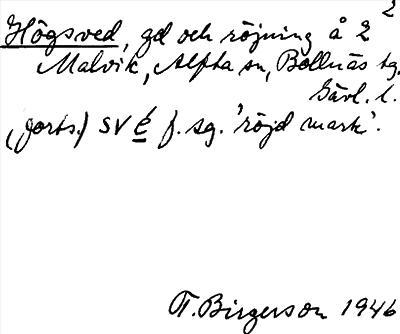 2
Högsved, gd och röjning å 2
Malvik, Alfta sn, Bollnäs tg.
Gävl. l.
(forts.) své f. sg. 'röjd mark'.
T. Birgerson 1946